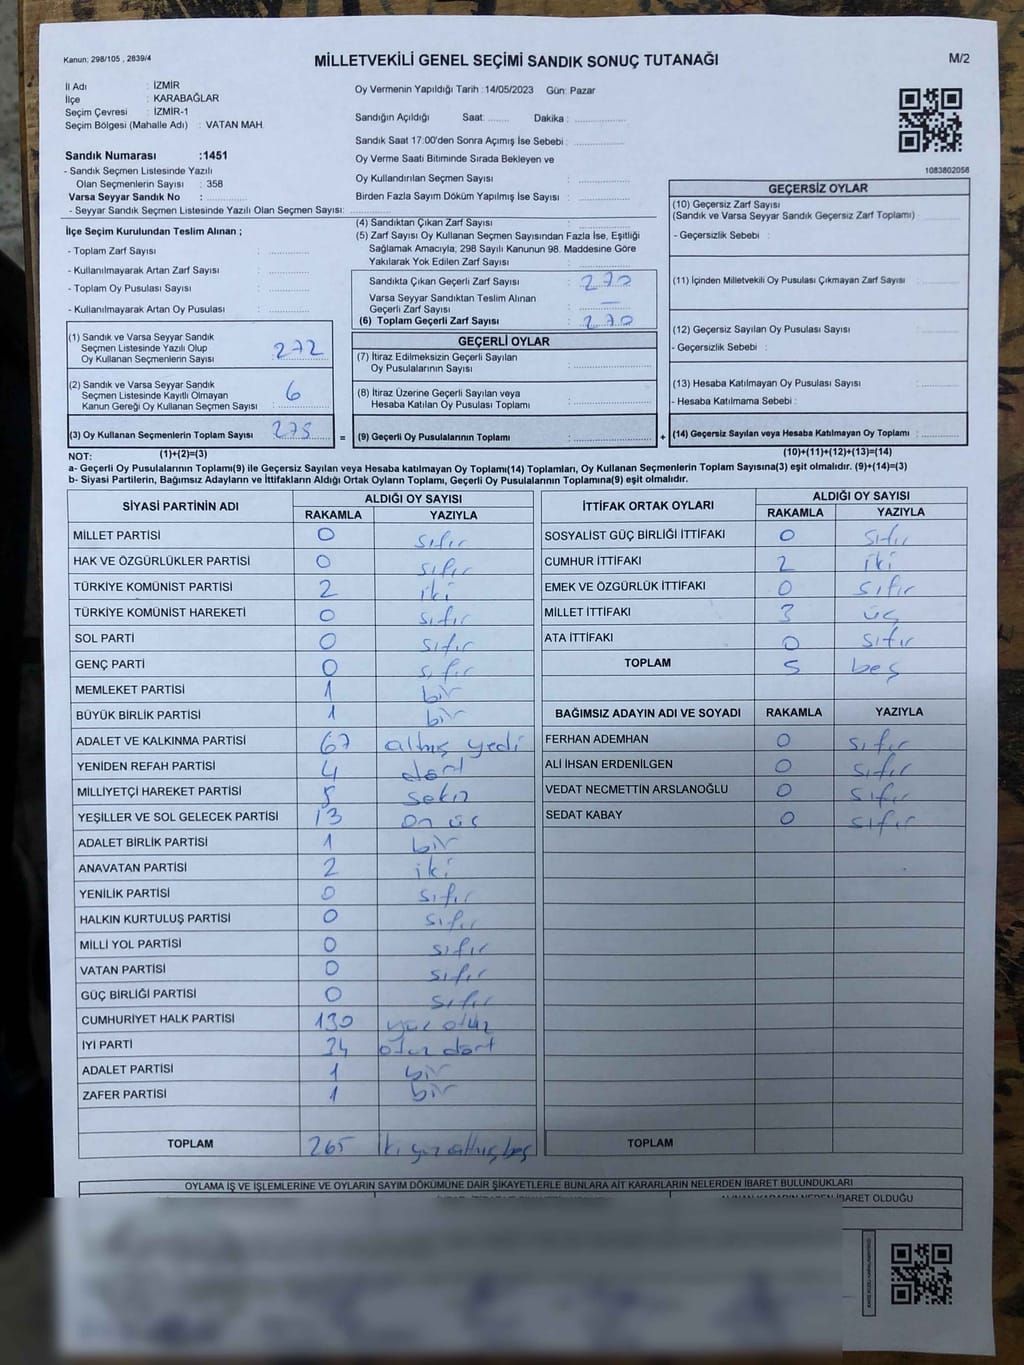 Kanun: 298/105 , 2839/4
MİLLETVEKİLİ GENEL SEÇİMİ SANDIK SONUÇ TUTANAĞI
M/2
İl Adı : İZMİR
İlçe : KARABAĞLAR
Seçim Çevresi : İZMİR-1
Seçim Bölgesi (Mahalle Adı) : VATAN MAH
Sandık Numarası :1451
- Sandık Seçmen Listesinde Yazılı
Olan Seçmenlerin Sayısı : 358
Varsa Seyyar Sandık No :
- Seyyar Sandık Seçmen Listesinde Yazılı Olan Seçmen Sayısı:
İlçe Seçim Kurulundan Teslim Alınan ;
- Toplam Zarf Sayısı :
- Kullanılmayarak Artan Zarf Sayısı :
- Toplam Oy Pusulası Sayısı :
- Kullanılmayarak Artan Oy Pusulası :
(1) Sandık ve Varsa Seyyar Sandık
Seçmen Listesinde Yazılı Olup
Oy Kullanan Seçmenlerin Sayısı : 272
(2) Sandık ve Varsa Seyyar Sandık
Seçmen Listesinde Kayıtlı Olmayan
Kanun Gereği Oy Kullanan Seçmen Sayısı : 6
(3) Oy Kullanan Seçmenlerin Toplam Sayısı : 275
Oy Vermenin Yapıldığı Tarih :14/05/2023 Gün: Pazar
Sandığın Açıldığı Saat: Dakika :
Sandık Saat 17:00'den Sonra Açımış İse Sebebi :
Oy Verme Saati Bitiminde Sırada Bekleyen ve
Oy Kullandırılan Seçmen Sayısı :
Birden Fazla Sayım Döküm Yapılmış İse Sayısı :
(4) Sandıktan Çıkan Zarf Sayısı :
(5) Zarf Sayısı Oy Kullanan Seçmen Sayısından Fazla İse, Eşitliği
Sağlamak Amacıyla; 298 Sayılı Kanunun 98. Maddesine Göre
Yakılarak Yok Edilen Zarf Sayısı :
Sandıkta Çıkan Geçerli Zarf Sayısı : 270
Varsa Seyyar Sandıktan Teslim Alınan
Geçerli Zarf Sayısı : —
(6) Toplam Geçerli Zarf Sayısı : 270
GEÇERLİ OYLAR
(7) İtiraz Edilmeksizin Geçerli Sayılan
Oy Pusulalarının Sayısı :
(8) İtiraz Üzerine Geçerli Sayılan veya
Hesaba Katılan Oy Pusulası Toplamı :
= (9) Geçerli Oy Pusulalarının Toplamı :
1083802058
GEÇERSİZ OYLAR
(10) Geçersiz Zarf Sayısı
(Sandık ve Varsa Seyyar Sandık Geçersiz Zarf Toplamı) :
- Geçersizlik Sebebi :
(11) İçinden Milletvekili Oy Pusulası Çıkmayan Zarf Sayısı :
(12) Geçersiz Sayılan Oy Pusulası Sayısı :
- Geçersizlik Sebebi :
(13) Hesaba Katılmayan Oy Pusulası Sayısı :
- Hesaba Katılmama Sebebi :
+ (14) Geçersiz Sayılan veya Hesaba Katılmayan Oy Toplamı :
NOT: (1)+(2)=(3) (10)+(11)+(12)+(13)=(14)
a- Geçerli Oy Pusulalarının Toplamı(9) ile Geçersiz Sayılan veya Hesaba katılmayan Oy Toplamı(14) Toplamları, Oy Kullanan Seçmenlerin Toplam Sayısına(3) eşit olmalıdır. (9)+(14)=(3)
b- Siyasi Partilerin, Bağımsız Adayların ve İttifakların Aldığı Ortak Oyların Toplamı, Geçerli Oy Pusulalarının Toplamına(9) eşit olmalıdır.
SİYASİ PARTİNİN ADI ALDIĞI OY SAYISI
RAKAMLA YAZIYLA
MİLLET PARTİSİ 0 sıfır
HAK VE ÖZGÜRLÜKLER PARTİSİ 0 sıfır
TÜRKİYE KOMÜNİST PARTİSİ 2 iki
TÜRKİYE KOMÜNİST HAREKETİ 0 sıfır
SOL PARTİ 0 sıfır
GENÇ PARTİ 0 sıfır
MEMLEKET PARTİSİ 1 bir
BÜYÜK BİRLİK PARTİSİ 1 bir
ADALET VE KALKINMA PARTİSİ 67 altmış yedi
YENİDEN REFAH PARTİSİ 4 dört
MİLLİYETÇİ HAREKET PARTİSİ sekiz
YEŞİLLER VE SOL GELECEK PARTİSİ 13 on üç
ADALET BİRLİK PARTİSİ 1 bir
ANAVATAN PARTİSİ 2 iki
YENİLİK PARTİSİ 0 sıfır
HALKIN KURTULUŞ PARTİSİ 0 sıfır
MİLLİ YOL PARTİSİ 0 sıfır
VATAN PARTİSİ 0 sıfır
GÜÇ BİRLİĞİ PARTİSİ 0 sıfır
CUMHURİYET HALK PARTİSİ 130 yüz otuz
İYİ PARTİ 34 otuz dört
ADALET PARTİSİ 1 bir
ZAFER PARTİSİ 1 bir
TOPLAM 265 iki yüz altmış beş
İTTİFAK ORTAK OYLARI ALDIĞI OY SAYISI
RAKAMLA YAZIYLA
SOSYALİST GÜÇ BİRLİĞİ İTTİFAKI 0 sıfır
CUMHUR İTTİFAKI 2 iki
EMEK VE ÖZGÜRLÜK İTTİFAKI 0 sıfır
MİLLET İTTİFAKI 3 üç
ATA İTTİFAKI 0 sıfır
TOPLAM 5 beş
BAĞIMSIZ ADAYIN ADI VE SOYADI RAKAMLA YAZIYLA
FERHAN ADEMHAN 0 sıfır
ALİ İHSAN ERDENİLGEN 0 sıfır
VEDAT NECMETTİN ARSLANOĞLU 0 sıfır
SEDAT KABAY 0 sıfır
TOPLAM
OYLAMA İŞ VE İŞLEMLERİNE VE OYLARIN SAYIM DÖKÜMÜNE DAİR ŞİKAYETLERLE BUNLARA AİT KARARLARIN NELERDEN İBARET BULUNDUKLARI
ALINAN KARARIN NEDEN İBARET OLDUĞU